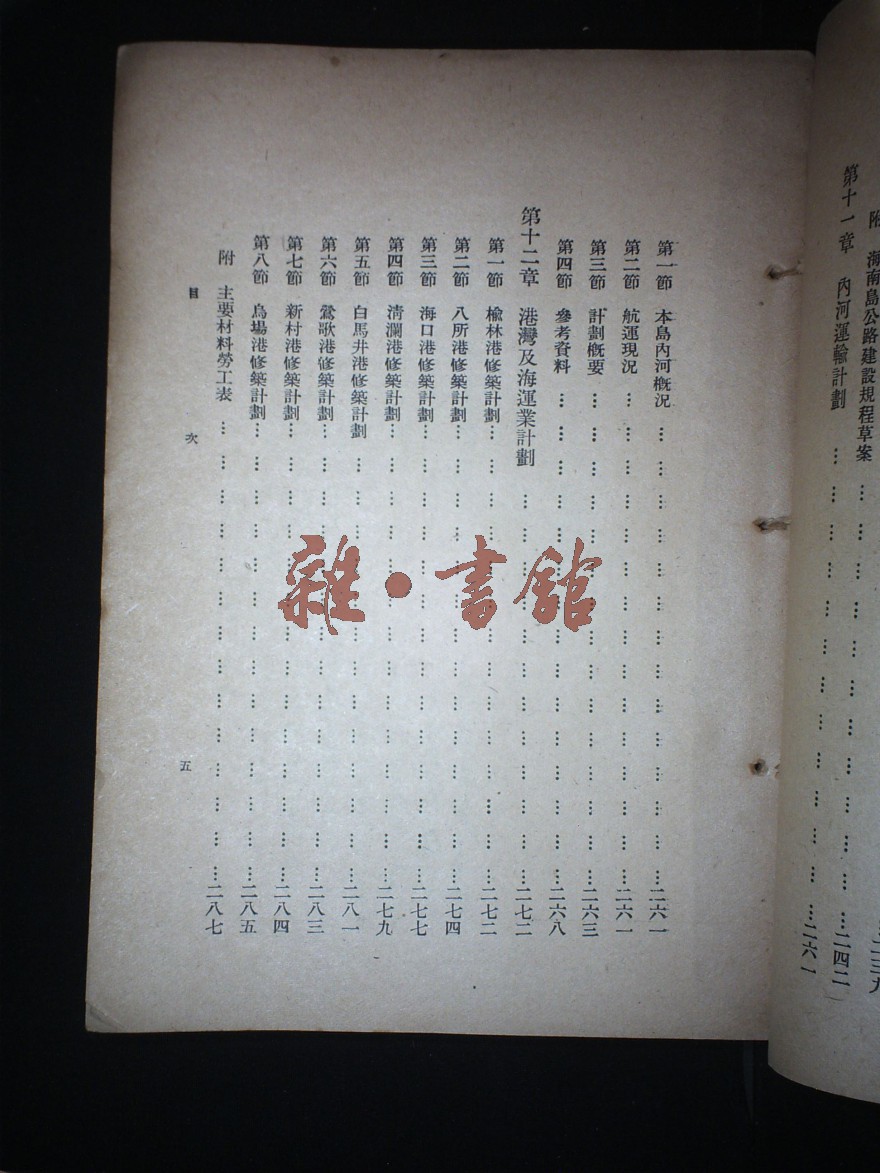 附　海南島公路建設規程草案 … … … … … … … … … …二三九
… … … … … … … … … …二四二
第十一章　內河運輸計劃 … … … … … … … … … …二六一
第一節　本島內河概況 … … … … … … … … … …二六一
第二節　航運現況 … … … … … … … … … … …二六一
第三節　計劃概要 … … … … … … … … … … …二六三
第四節　參考資料 … … … … … … … … … … …二六八
第十二章　港灣及海運業計劃 … … … … … … … … …二七二
第一節　楡林港修築計劃… … … … … … … … … …二七二
第二節　八所港修築計劃… … … … … … … … … …二七四
第三節　海口港修築計劃… … … … … … … … … …二七七
第四節　淸瀾港修築計劃… … … … … … … … … …二七九
第五節　白馬井港修築計劃 … … … … … … … … …二八一
第六節　鶯歌港修築計劃… … … … … … … … … …二八三
第七節　新村港修築計劃… … … … … … … … … …二八四
第八節　烏場港修築計劃… … … … … … … … … …二八五
附　主要材料勞工表 … … … … … … … … … … …二八七
目　次
五
雜·書館